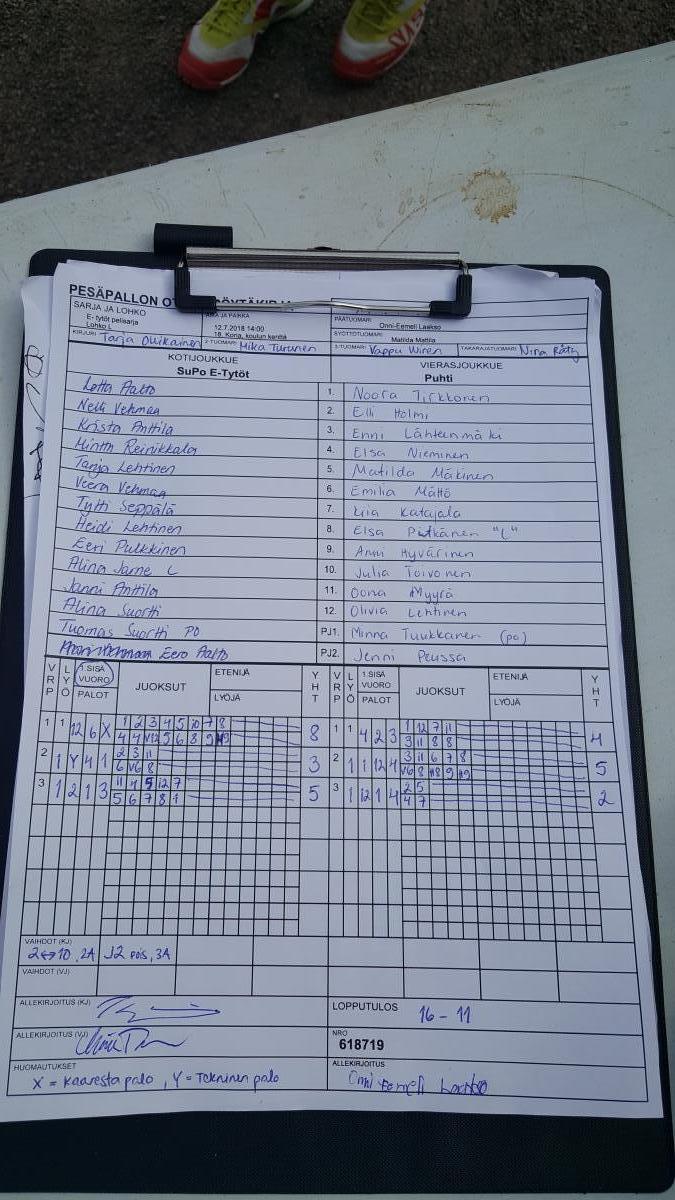 PESÄPALLON
SARJA JA LOHKO
E- tytöt pelisarja
Lohko L
AIKA JA PAIKKA
12.7.2018 14:00
18. Koria, koulun kenttä
PÄÄTUOMARI
Onni-Eemeli Laakso
SYÖTTÖTUOMARI
Matilda Mattila
KIRJURI Tarja Ovikainen 2-TUOMARI Mika Turunen 3-TUOMARI Vappu Wiren TAKARAJATUOMARI Nina Räty
KOTIJOUKKUE VIERASJOUKKUE
SuPo E-Tytöt Puhti
Lotta Aalto 1. Noora Tirkkonen
Nelli Vehmaa 2. Elli Holmi
Krista Anttila 3. Enni Lähteenmäki
Minttu Reinikkala 4. Elsa Nieminen
Tanja Lehtinen 5. Matilda Mäkinen
Veera Vehmaa 6. Emilia Mättö
Tytti Seppälä 7. Liia Katajala
Heidi Lehtinen 8. Elsa Pitkänen "L"
Eeri Pulkkinen 9. Anni Hyvärinen
Alina Jarne L 10. Julia Toivonen
Janni Anttila 11. Oona Myyrä
Alina Suortti 12. Olivia Lehtinen
Tuomas Suortti PO PJ1. Minna Tuukkanen (po)
Eero Aalto PJ2. Jenni Peussa
VRP LYÖ 1.SISÄ VUORO PALOT JUOKSUT ETENIJÄ LYÖJÄ YHT VRP LYÖ 1.SISÄ VUORO PALOT JUOKSUT ETENIJÄ LYÖJÄ YHT
1 1 12 6 X 1 2 3 4 5 10 7 8 8 1 1 4 2 3 1 12 7 11 4
3 11 8 8
2 1 Y 4 1 2 3 11 3 2 1 1 12 4 3 11 6 7 8 5
6 V6 8
3 1 2 1 3 11 4 5 12 7 5 3 1 12 1 4 2 5 2
5 6 7 8 1 4 7
VAIHDOT (KJ)
2↔10, 2A J2 pois, 3A
VAIHDOT (VJ)
ALLEKIRJOITUS (KJ) LOPPUTULOS 16 - 11
ALLEKIRJOITUS (VJ) NRO
618719
HUOMAUTUKSET ALLEKIRJOITUS
X = Kaaresta palo , Y = Tekninen palo Onni Eemeli Laakso